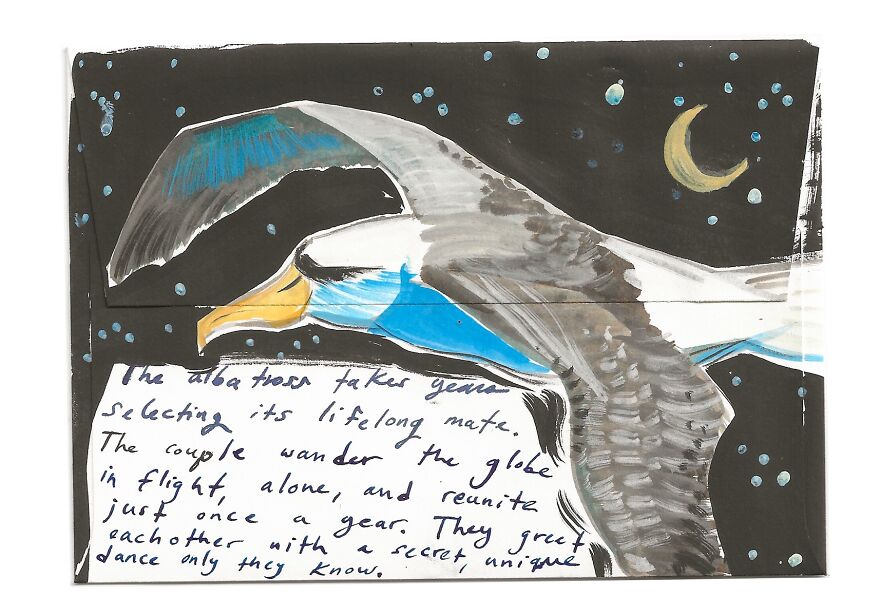 The albatross takes years
selecting its lifelong mate.
The couple wander the globe
in flight, alone, and reunite
just once a year. They greet
eachother with a secret, unique
dance only they know.